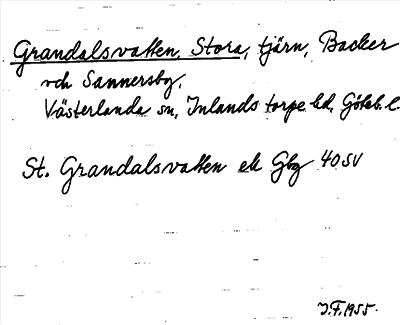 Grandalsvatten, Stora, tjärn, Backer
och Sannersby,
Västerlanda sn, Inlands torpe hd, Göteb. l.
St. Grandalsvatten ek Gbg 40 SV
J.F. 1955.